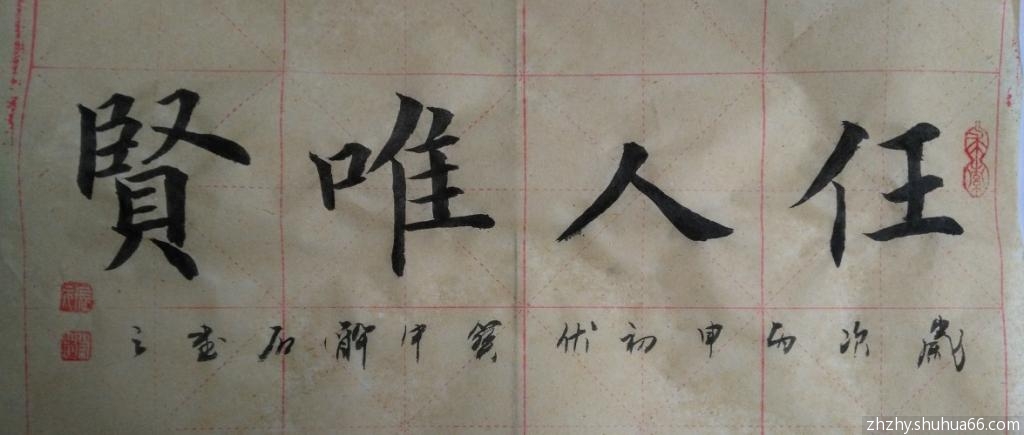 任人唯賢
歲次丙申初伏寶中解石書之
zhzhy.shuhua66.com